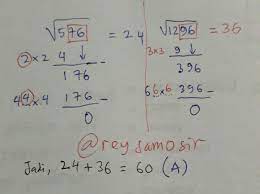 √576 = 24
2 × 2 4
176
44 × 4 176 –
0
√1296 = 36
3×3 9
396
66×6 396 –
0
@reysamosir
Jadi, 24 + 36 = 60 (A)